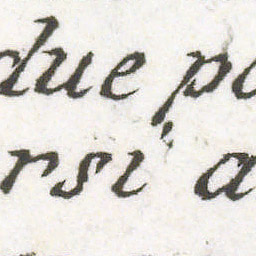 due po
rsi a